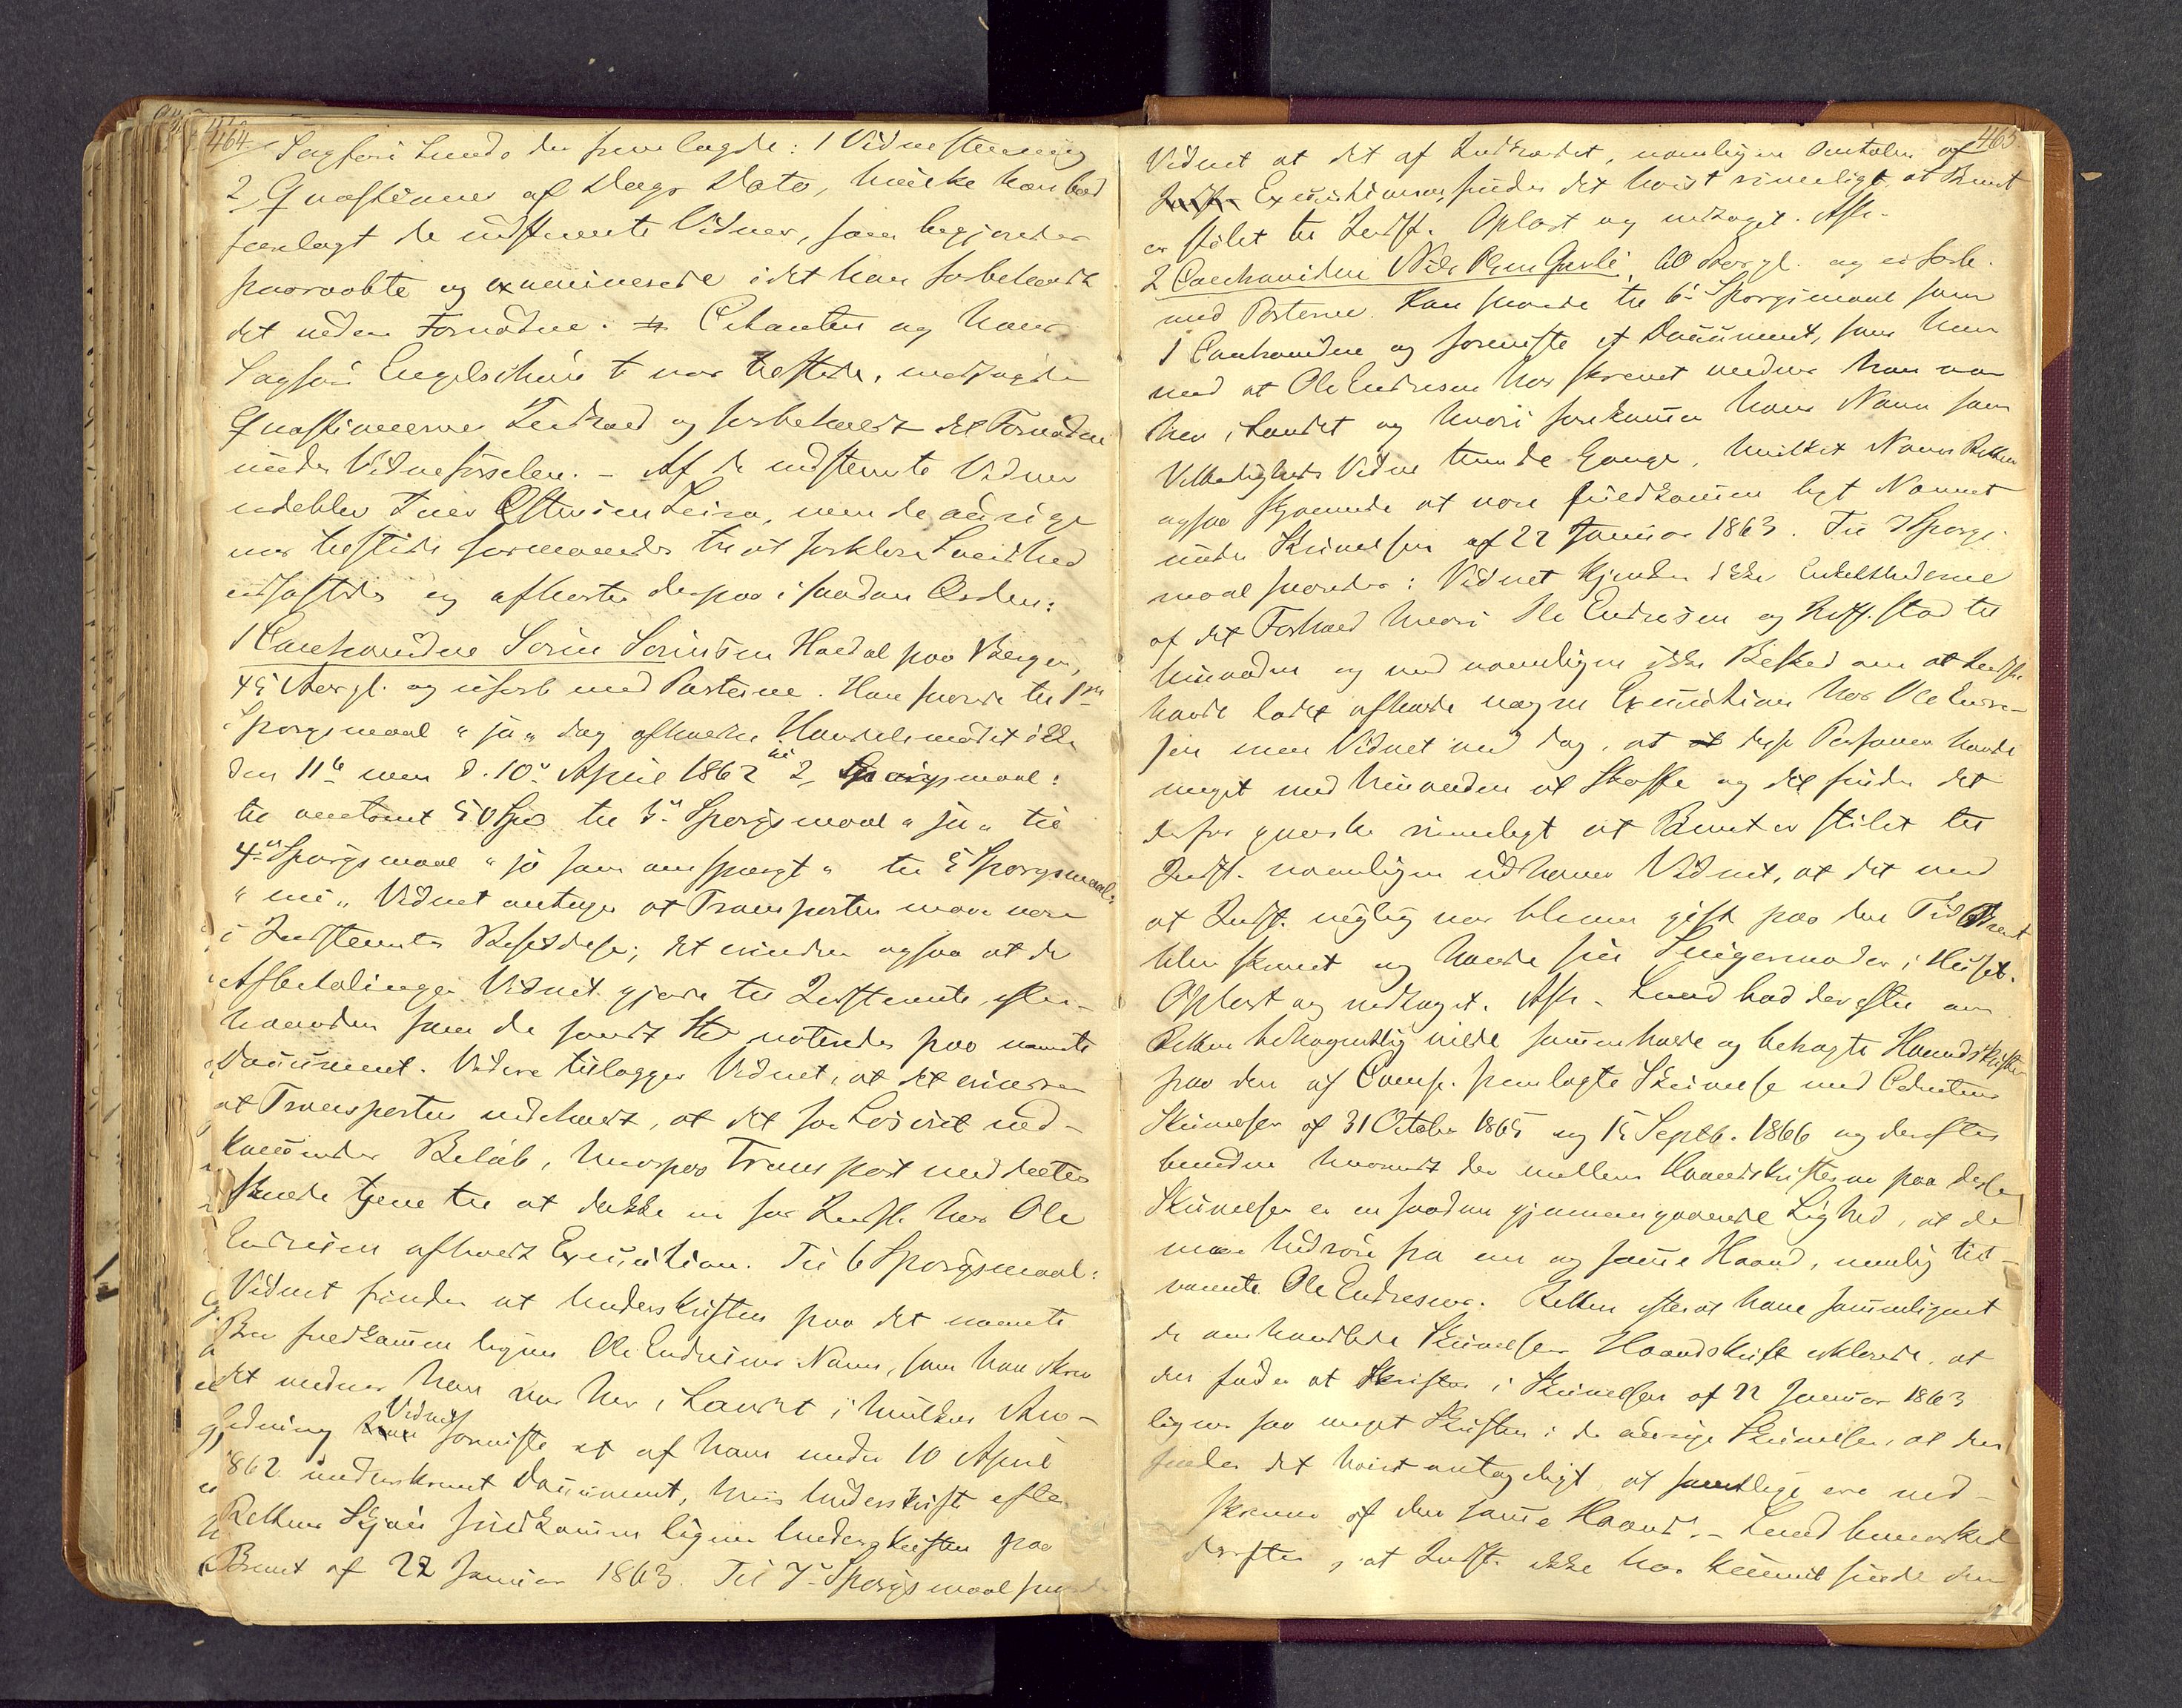 464
Sagfører Lund, der fremlagde: 1 Vidnestevning
2, Qvæstioner af Dags Dato, hvilke han bad
forelagt de indstevnte Vidner, som begjæredes
paaraabte og examinerede idet han forbeholdt
det videre Fornødne. Citanten og hans
Sagfører Engelschiøn t var tilstede, modtagde
Qvæstionerne Indhold og forbeholdt det Fornødne
under Vidneførselen. – Af de indstevnte Vidner
udeblev Iver Leira, men de øvrige
var tilstede formanedes til at forklare Sandhed
edfæstedes og afhørtes derpaa i saadan Orden:
1 Contravidne Sørin Sørinsen Hordal paa Bergen,
45 Aar gl. og uforb. med Parterne. Han svarede til 1ste
Spørgsmaal "ja" dog afholdtes Handelsmødet ikke
den 11te men d. 10de April 1862 til 2, Spørgsmaal:
til omtrent 50 Spd til 3de Spørgsmaal "ja" til
4de Spørgsmaal "jo som omspørgt" til 5 Spørgsmaal:
"nei" Vidnet antager at Transporten maa være
i Indstevntes Besiddelse; det erindrer ogsaa at de
Afbetalinger Vidnet gjorde til Indstevnte, efter-
haanden som de fandt Sted noteredes paa nævnte
Document. Videre tillægger Vidnet, at det erindrer
at Transporten indeholdt, at det for Løsøret ned-
kommende Beløb, hvorpaa Transport meddeeltes
skulde tjene til at dække en for Indst. hos Ole
Endresen afholdt Execution. Til 6 Spørgsmaal:
Vidnet finder at Underskriften paa det nævnte
Brev fuldkommen ligner Ole Endresens Navn, som han skrev
det medens han var her i Landet i hvilken An-
ledning Vidnet foreviste et af ham under 10 April
1862 underskrevet Document, hvis Underskrift efter
Rettens Skjøn fuldkommen ligner Underskriften paa
Brevet af 22 Januar 1863. Til 7de Spørgsmaal svarede
465
Vidnet at det af Indholdet, navnligen Omtalen af
Executionen, finder det høist rimeligt, at Brevet
er stilet til Indst. Oplæst og vedtaget. Aftr.
2 Contravidne Nils Gjerli, 60 Aar gl. og ei forb.
med Parterne. Han svarede til 6te Spørgsmaal som
1 Contravidne og foreviste et Document, som han
med at Ole Endresen har skrevet medens han var
her i Landet og hvori forekommer hans Navn som
Vitterligheds Vidne trende Gange, hvilket Navn Retten
ogsaa skjønnede at være fuldkommen ligt Navnet
under Skrivelsen af 22 Januar 1863. Til 7 Spørgs-
maal svaredes: Vidnet kjender ikke Enkelthederne
af det Forhold hvori Ole Endresen og Indst. stod til
hinanden og ved navnligen ikke Besked om at Indst.
havde ladet afholde nogen Execution hos Ole Endre-
sen men Vidnet ved dog, at disse Personer havde
meget med hinanden at skaffe og det finder det
derfor ganske rimeligt at Brevet er stilet til
Indst. navnligen udhæver Vidnet, at det ved
at Indst. nylig var bleven gift paa den Tid Brevet
blev skrevet og havde sin Svigermoder i Huset.
Oplæst og vedtaget. Aftr. – Lund bad derefter om
Retten behageligt vilde sammenholde og betragte Haandskriften
paa den af Comp. fremlagte Skrivelse med Citantens
Skrivelser af 31 October 1865 og 15 Septb. 1866 og derefter
kundne hvorvidt der mellem Haandskrifterne paa disse
Skrivelser er en saadan gjennemgaaende Lighed, at de
maa hidrøre fra een og samme Haand, nemlig tit-
nævnte Ole Endresens. Retten efter at have sammenlignet
de omhandlede Skrivelsers Haandskrift erklærede, at
den finder at Skriften i Skrivelsen af 22 Januar 1863
ligner saa meget Skriften i de øvrige Skrivelser, at den
finder det høist antageligt, at samtlige ere ned-
skrevne af den samme Haand. – Lund bemærkede
derefter, at Indst. ikke har kunnet finde den